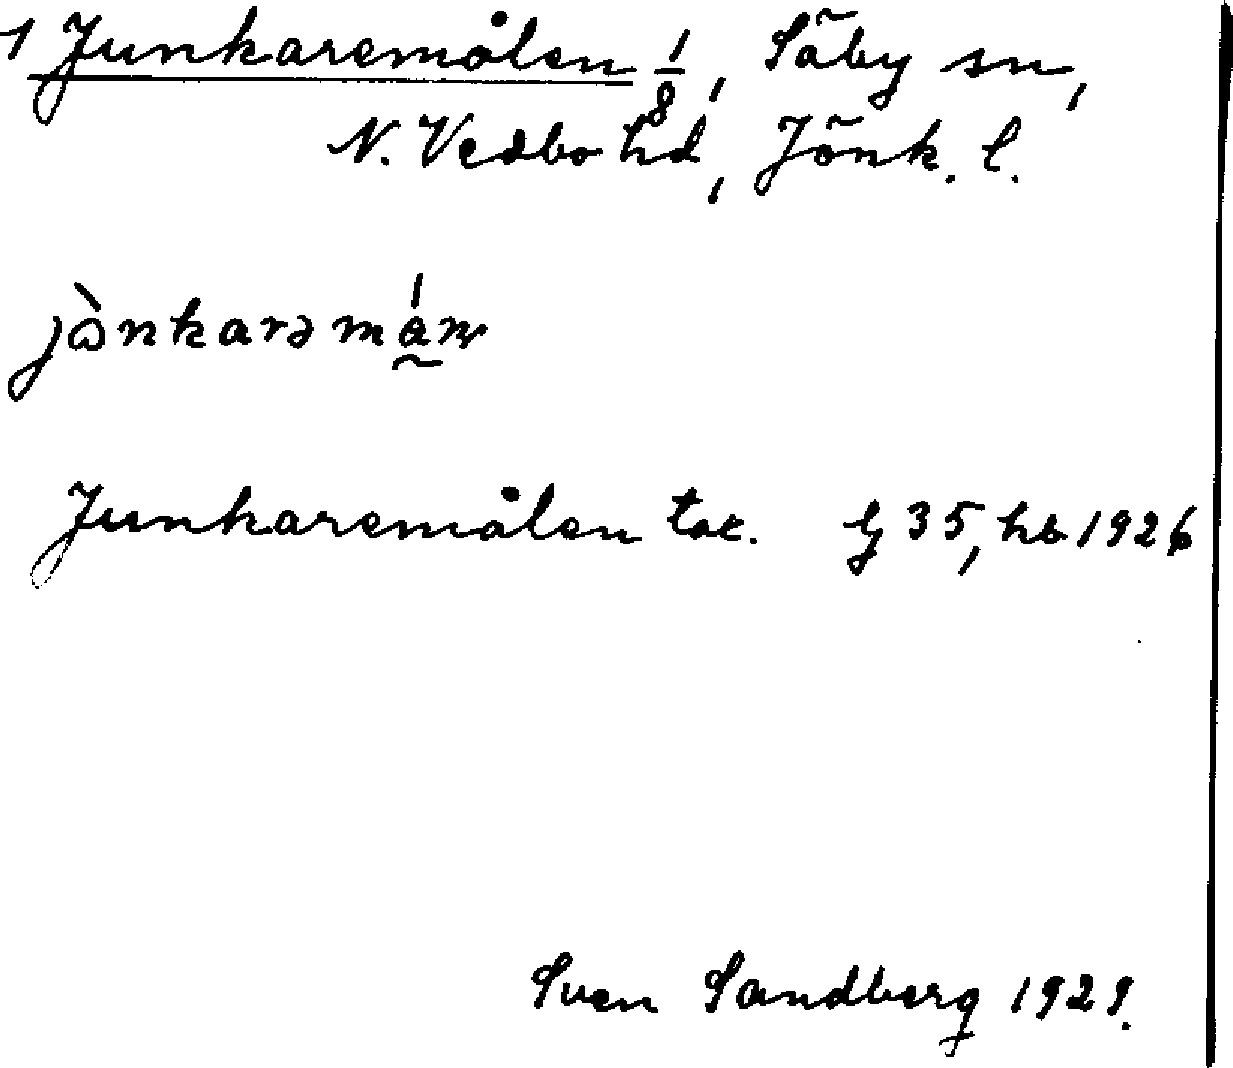 1 Junkaremålen 1/8, Säby sn,
N. Vedbo hd, Jönk. l.
Junkaremålen tor. Lj 35, hb 1926
Sven Sandberg 1929.